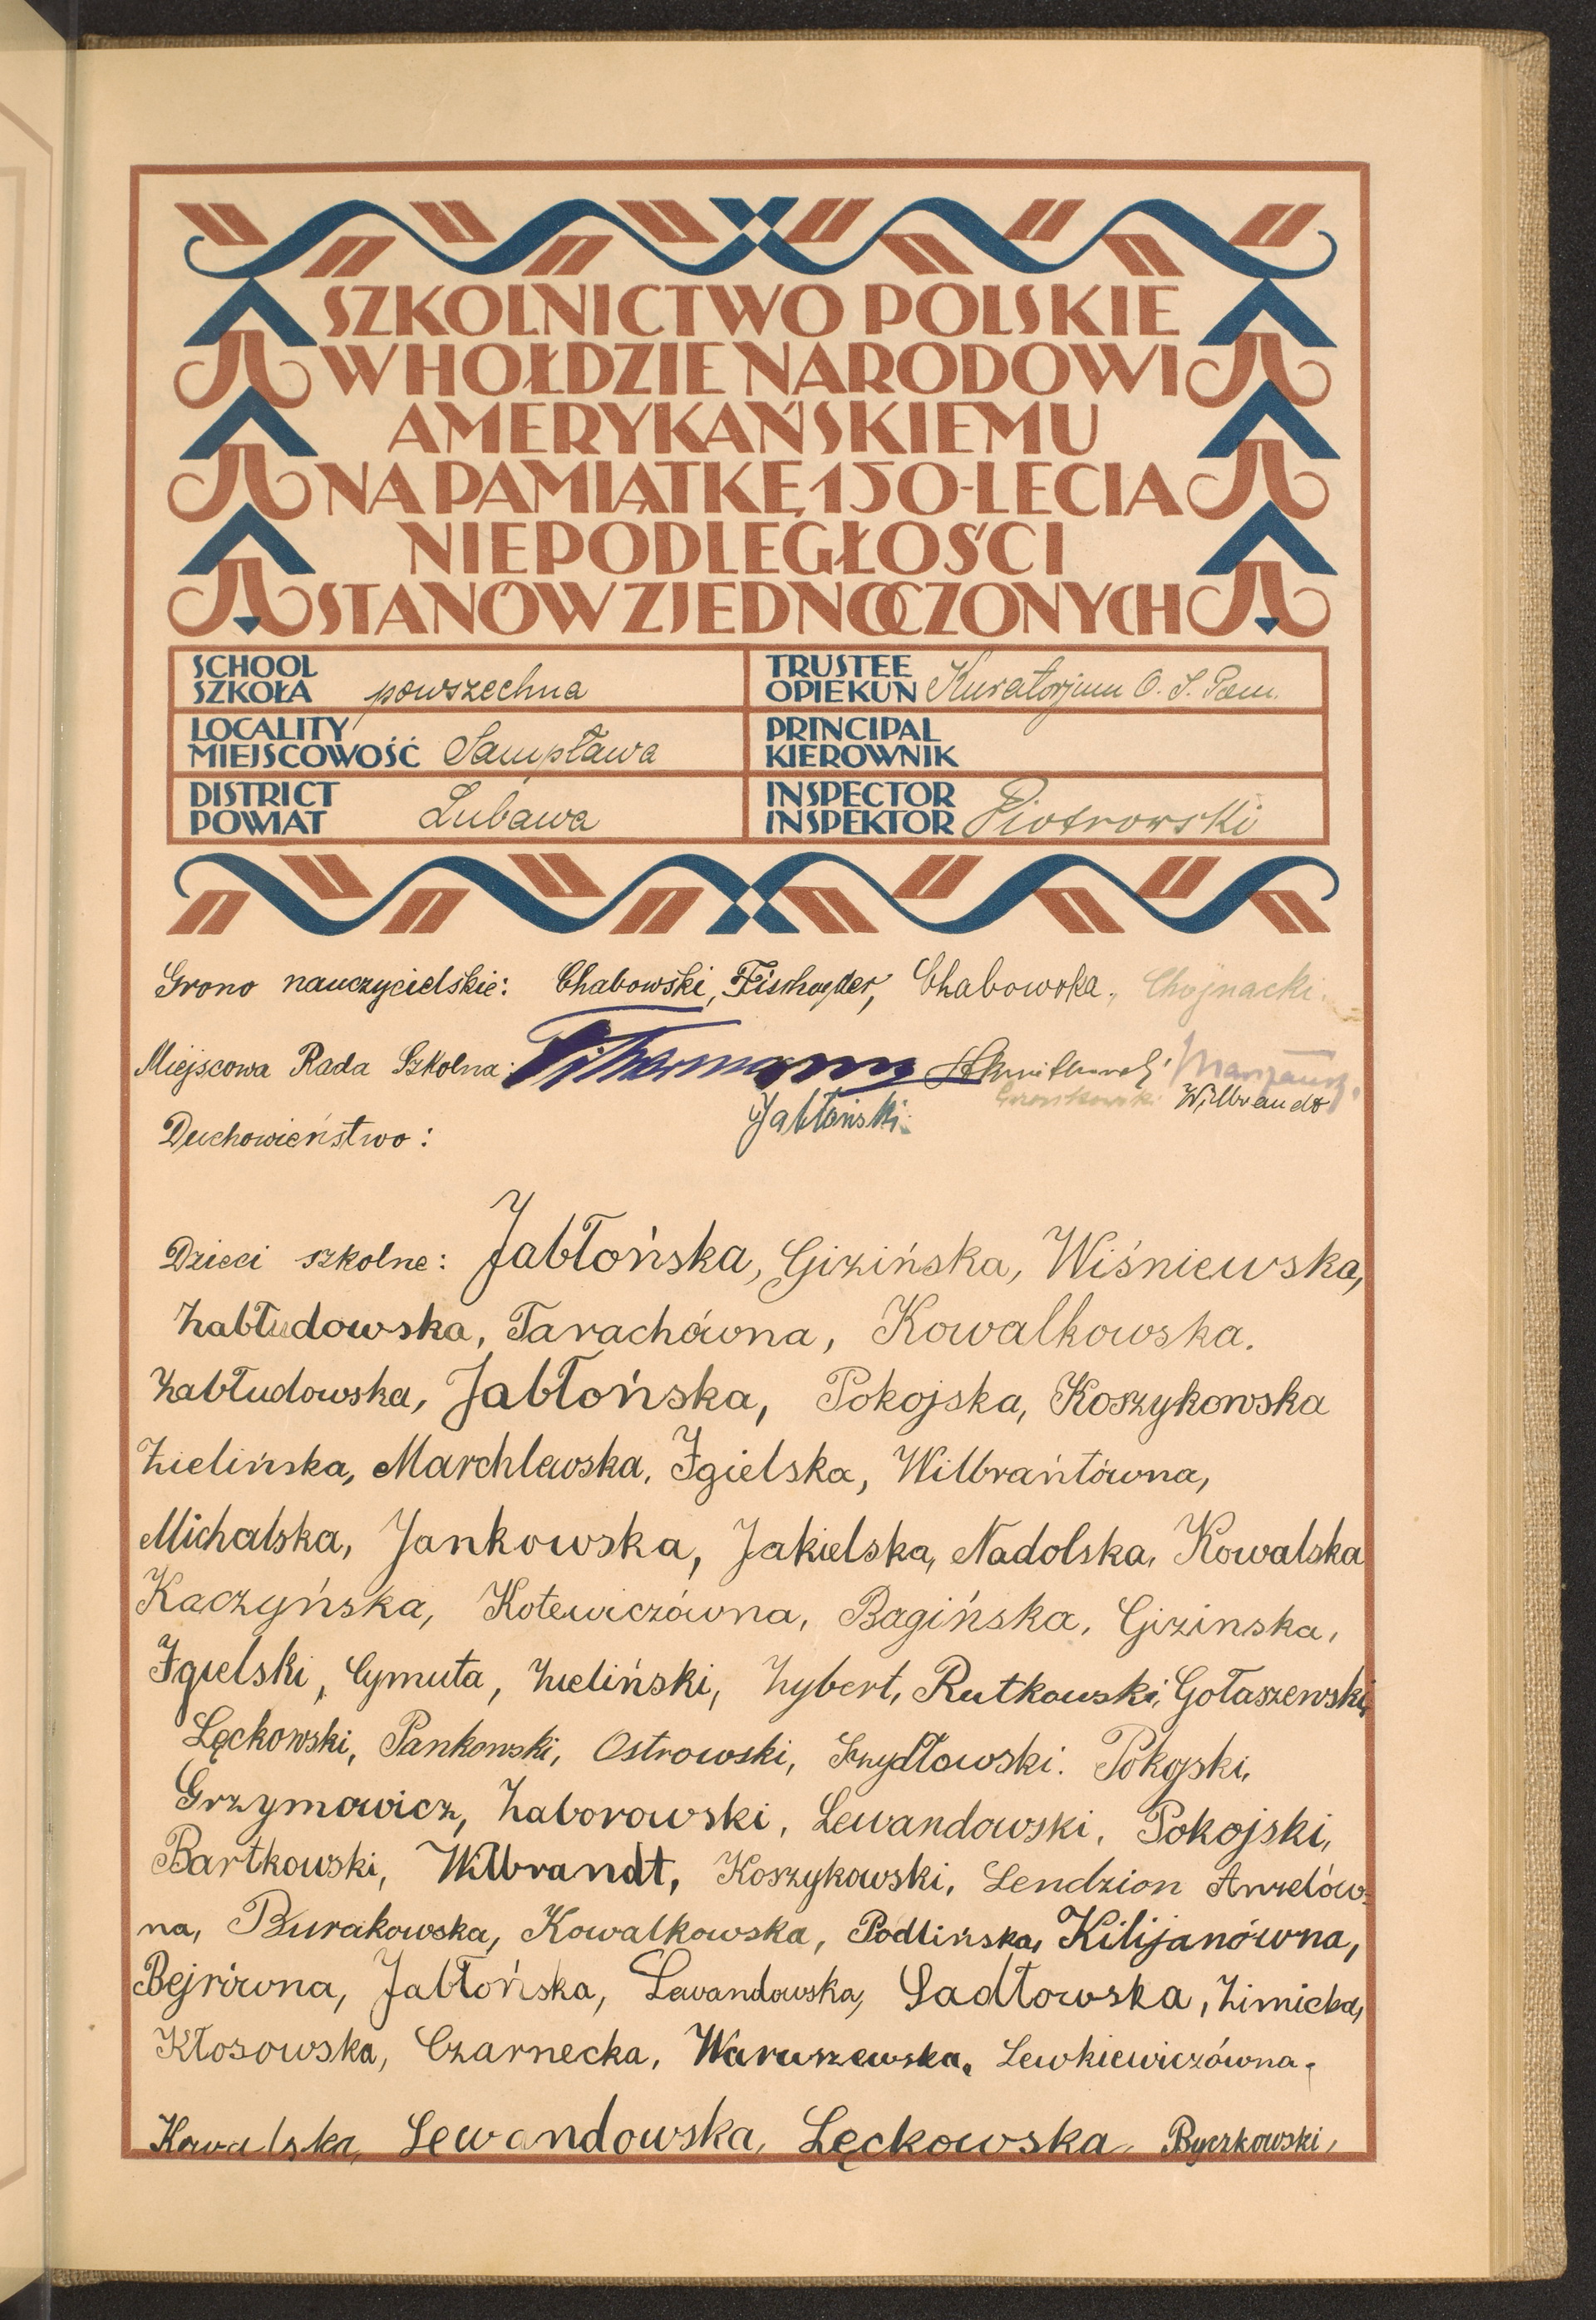 SZKOLNICTWO POLSKIE
W HOŁDZIE NARODOWI
AMERYKAŃSKIEMU
NA PAMIĄTKĘ 150-LECIA
NIEPODLEGŁOŚCI
STANÓW ZJEDNOCZONYCH
SCHOOL
SZKOŁA powszechna
TRUSTEE
OPIEKUN Kuratorjum O. S. Pom.
LOCALITY
MIEJSCOWOŚĆ Sampława
PRINCIPAL
KIEROWNIK
DISTRICT
POWIAT Lubawa
INSPECTOR
INSPEKTOR Piotrowski
Grono nauczycielskie: Chabowski, Chabowska, Chojnacki.
Miejscowa Rada Szkolna:
Wilbrandt
Jabłoński
Duchowieństwo:
Dzieci szkolne: Jabłońska, Gizińska, Wiśniewska,
Zabłudowska, Tarachówna, Kowalkowska.
Zabłudowska, Jabłońska, Pokojska, Koszykowska
Zielińska, Marchlewska, Igielska, Wilbrańtówna,
Michalska, Jankowska, Jakielska, Nadolska, Kowalska
Kaczyńska, Kotewiczówna, Bagińska, Gizinska,
Igielski, Cymuta, Zieliński, Zybert, Rutkowski, Gołaszewski,
Lęckowski, Pankowski, Ostrowski, Szydłowski. Pokojski,
Grzymowicz, Zaborowski, Lewandowski, Pokojski,
Bartkowski, Wilbrandt, Koszykowski, Lendzion Anzelów-
na, Burakowska, Kowalkowska, Podlińska, Kilijanówna,
Bejrówna, Jabłońska, Lewandowska, Sadłowska, Zimicka,
Kłosowska, Czarnecka, Waruszewska, Lewkiewiczówna,
Kowalska, Lewandowska, Lęckowska, Byczkowski,